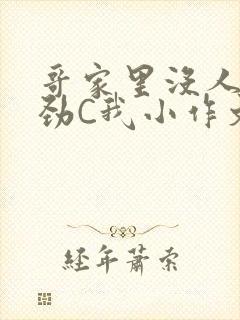 哥家里没人
劲C我小作文
经年萧索